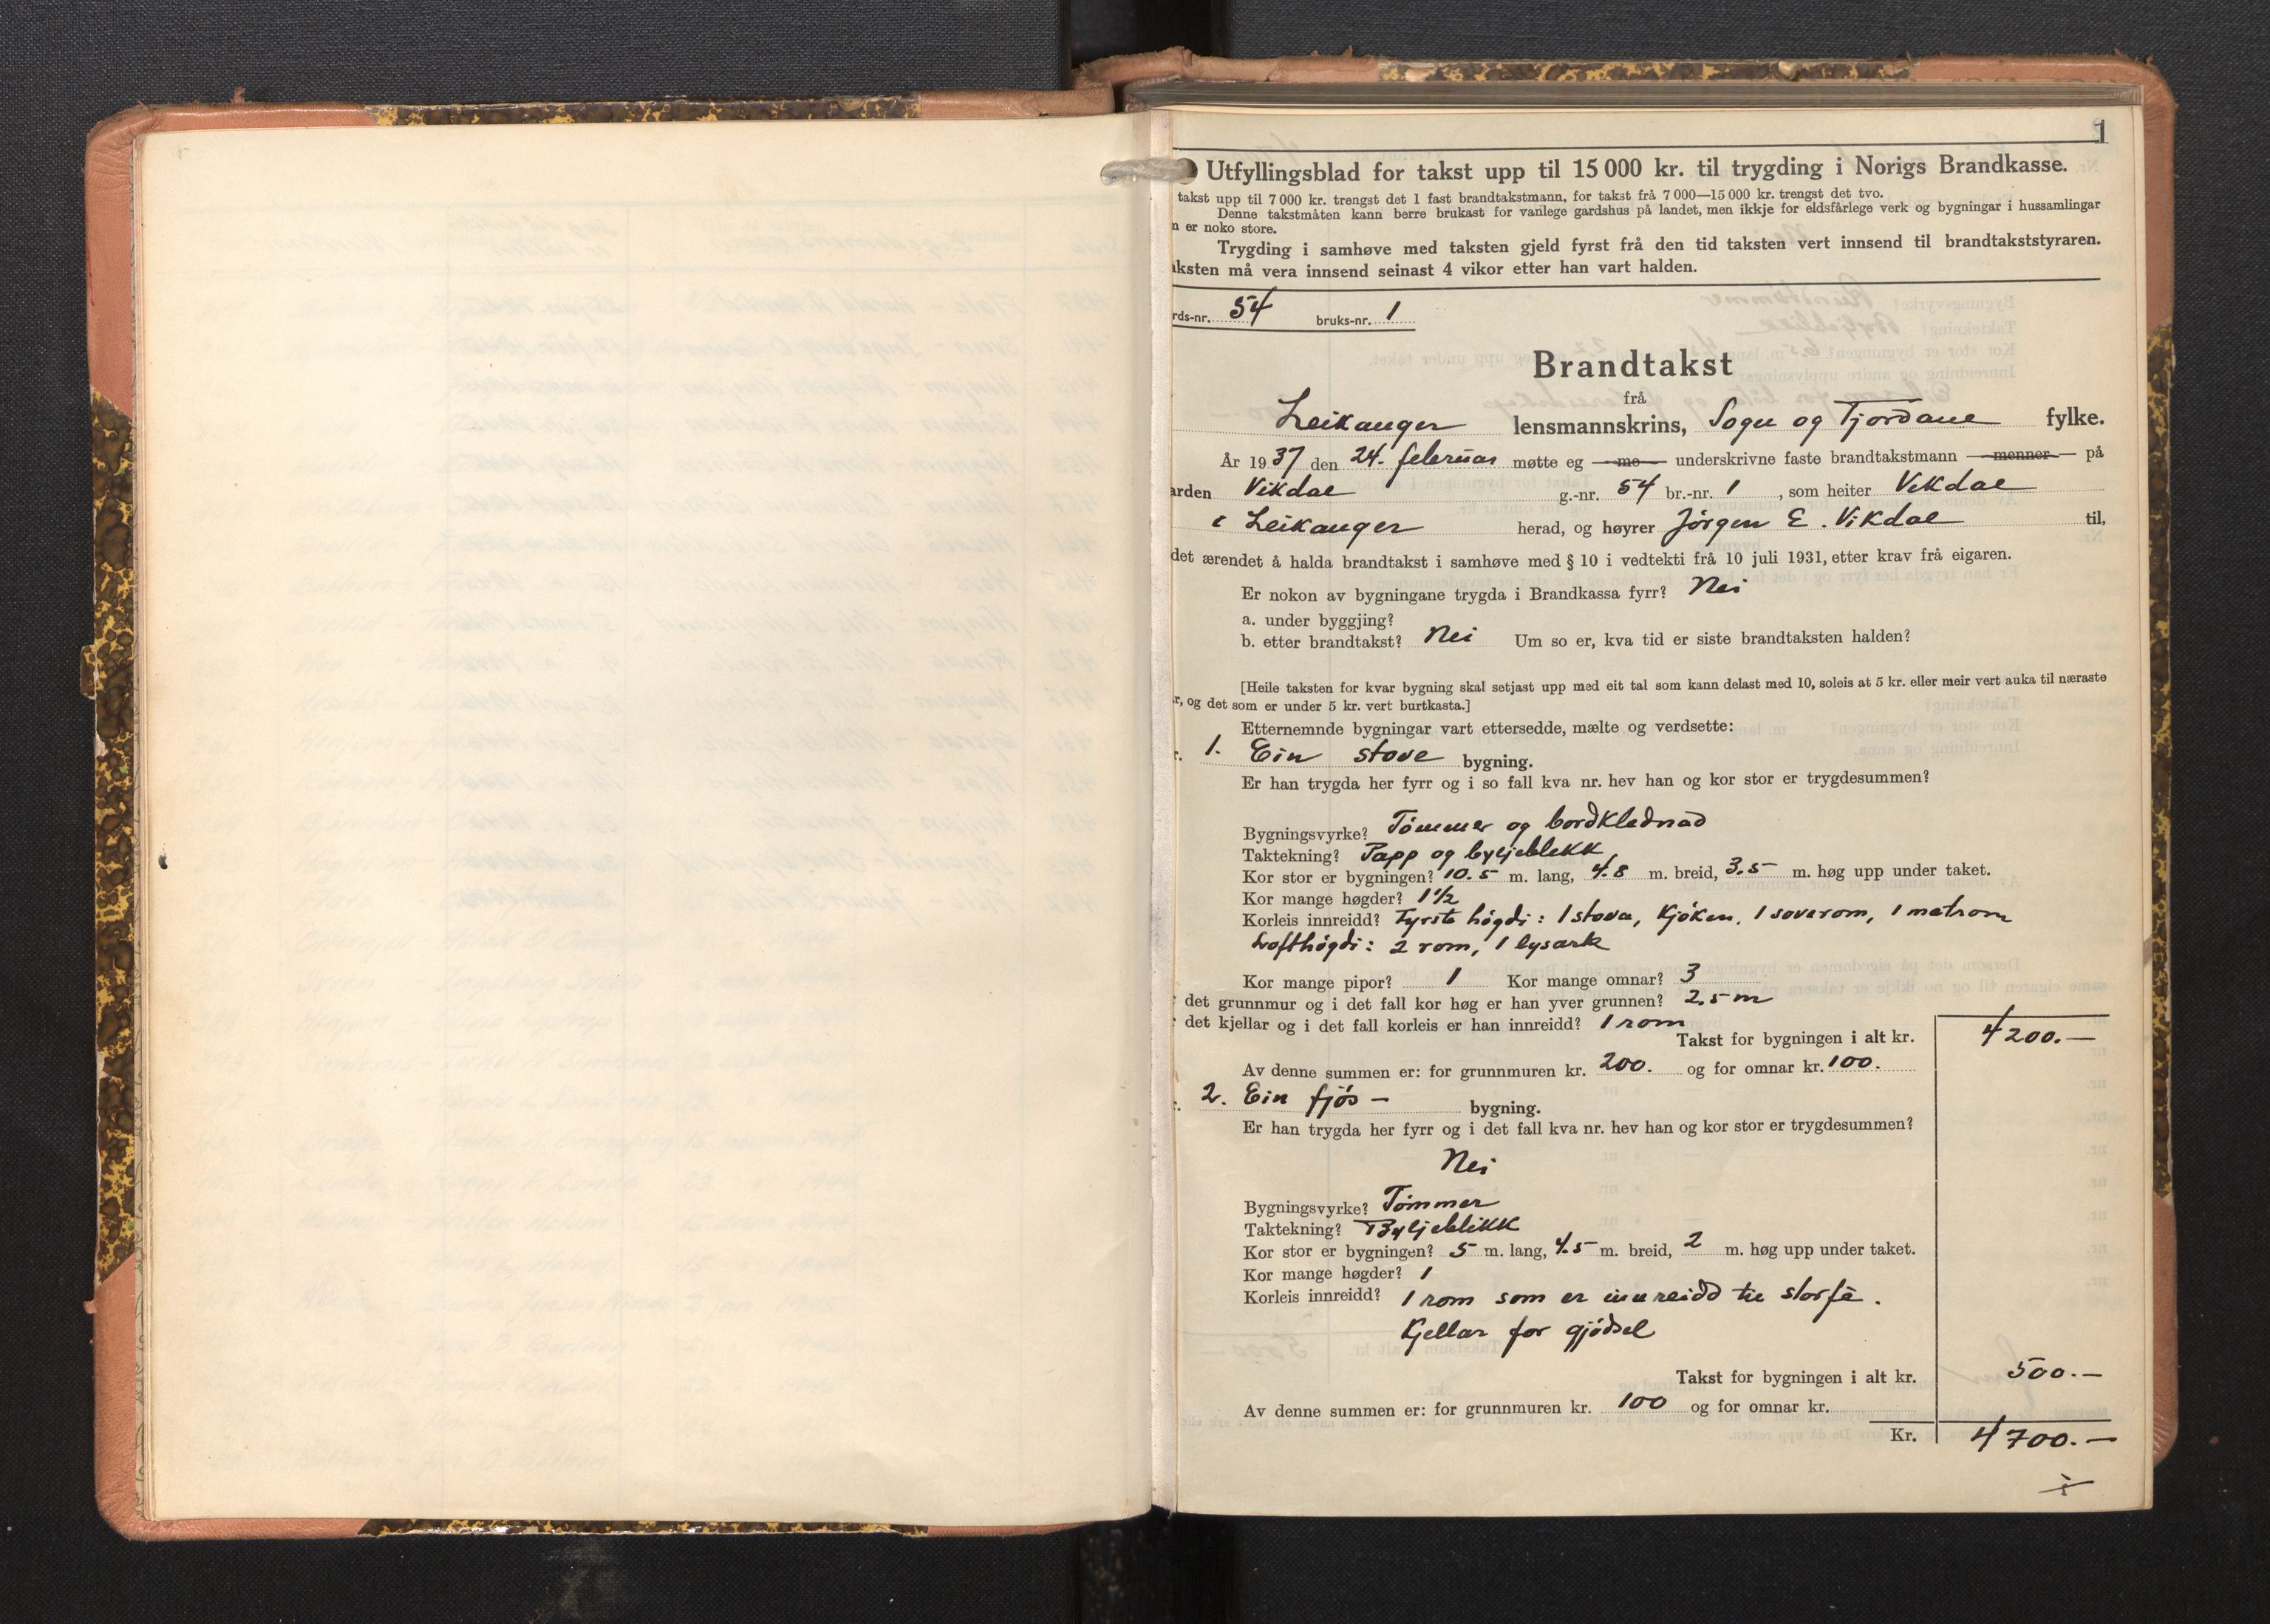 1
Utfyllingsblad for takst upp til 15 000 kr. til trygding i Norigs Brandkasse.
takst upp til 7 000 kr. trengst det 1 fast brandtakstmann, for takst frå 7 000—15 000 kr. trengst det tvo.
Denne takstmåten kann berre brukast for vanlege gardshus på landet, men ikkje for eldsfårlege verk og bygningar i hussamlingar
n er noko store.
Trygding i samhøve med taksten gjeld fyrst frå den tid taksten vert innsend til brandtakststyraren.
aksten må vera innsend seinast 4 vikor etter han vart halden.
rds-nr. 54 bruks-nr. 1
Brandtakst
frå
Leikanger lensmannskrins, Sogn og Fjordane fylke.
År 1937 den 24. februar møtte eg — me — underskrivne faste brandtakstmann — menner — på
arden Vikdal g.-nr. 54 br.-nr. 1, som heiter Vikdal
i Leikanger herad, og høyrer Jørgen E. Vikdal til,
det ærendet å halda brandtakst i samhøve med § 10 i vedtekti frå 10 juli 1931, etter krav frå eigaren.
Er nokon av bygningane trygda i Brandkassa fyrr? Nei
a. under byggjing?
b. etter brandtakst? Nei Um so er, kva tid er siste brandtaksten halden?
[Heile taksten for kvar bygning skal setjast upp med eit tal som kann delast med 10, soleis at 5 kr. eller meir vert auka til næraste
r, og det som er under 5 kr. vert burtkasta.]
Etternemnde bygningar vart ettersedde, mælte og verdsette:
r. 1. Ein stove bygning.
Er han trygda her fyrr og i so fall kva nr. hev han og kor stor er trygdesummen?
Bygningsvyrke? Tømmer og bordklednad
Taktekning? Papp og bylgjeblekk
Kor stor er bygningen? 10.5 m. lang, 4.8 m. breid, 3.5 m. høg upp under taket.
Kor mange høgder? 1½
Korleis innreidd? Fyrste høgdi: 1 stova, kjøken, 1 soverom, 1 matrom
Lofthøgdi: 2 rom, 1 lysark
Kor mange pipor? 1 Kor mange omnar? 3
det grunnmur og i det fall kor høg er han yver grunnen? 2.5 m
det kjellar og i det fall korleis er han innreidd? 1 rom
Takst for bygningen i alt kr. 4200.—
Av denne summen er: for grunnmuren kr. 200. og for omnar kr. 100.
r. 2. Ein fjøs - bygning.
Er han trygda her fyrr og i det fall kva nr. hev han og kor stor er trygdesummen?
Nei
Bygningsvyrke? Tømmer
Taktekning? Bylgjeblikk
Kor stor er bygningen? 5 m. lang, 4.5 m. breid, 2 m. høg upp under taket.
Kor mange høgder? 1
Korleis innreidd? 1 rom som er innreidd til storfe.
Kjellar for gjødsel
Takst for bygningen i alt kr. 500.—
Av denne summen er: for grunnmuren kr. 100 og for omnar kr.
Kr. 4700.—